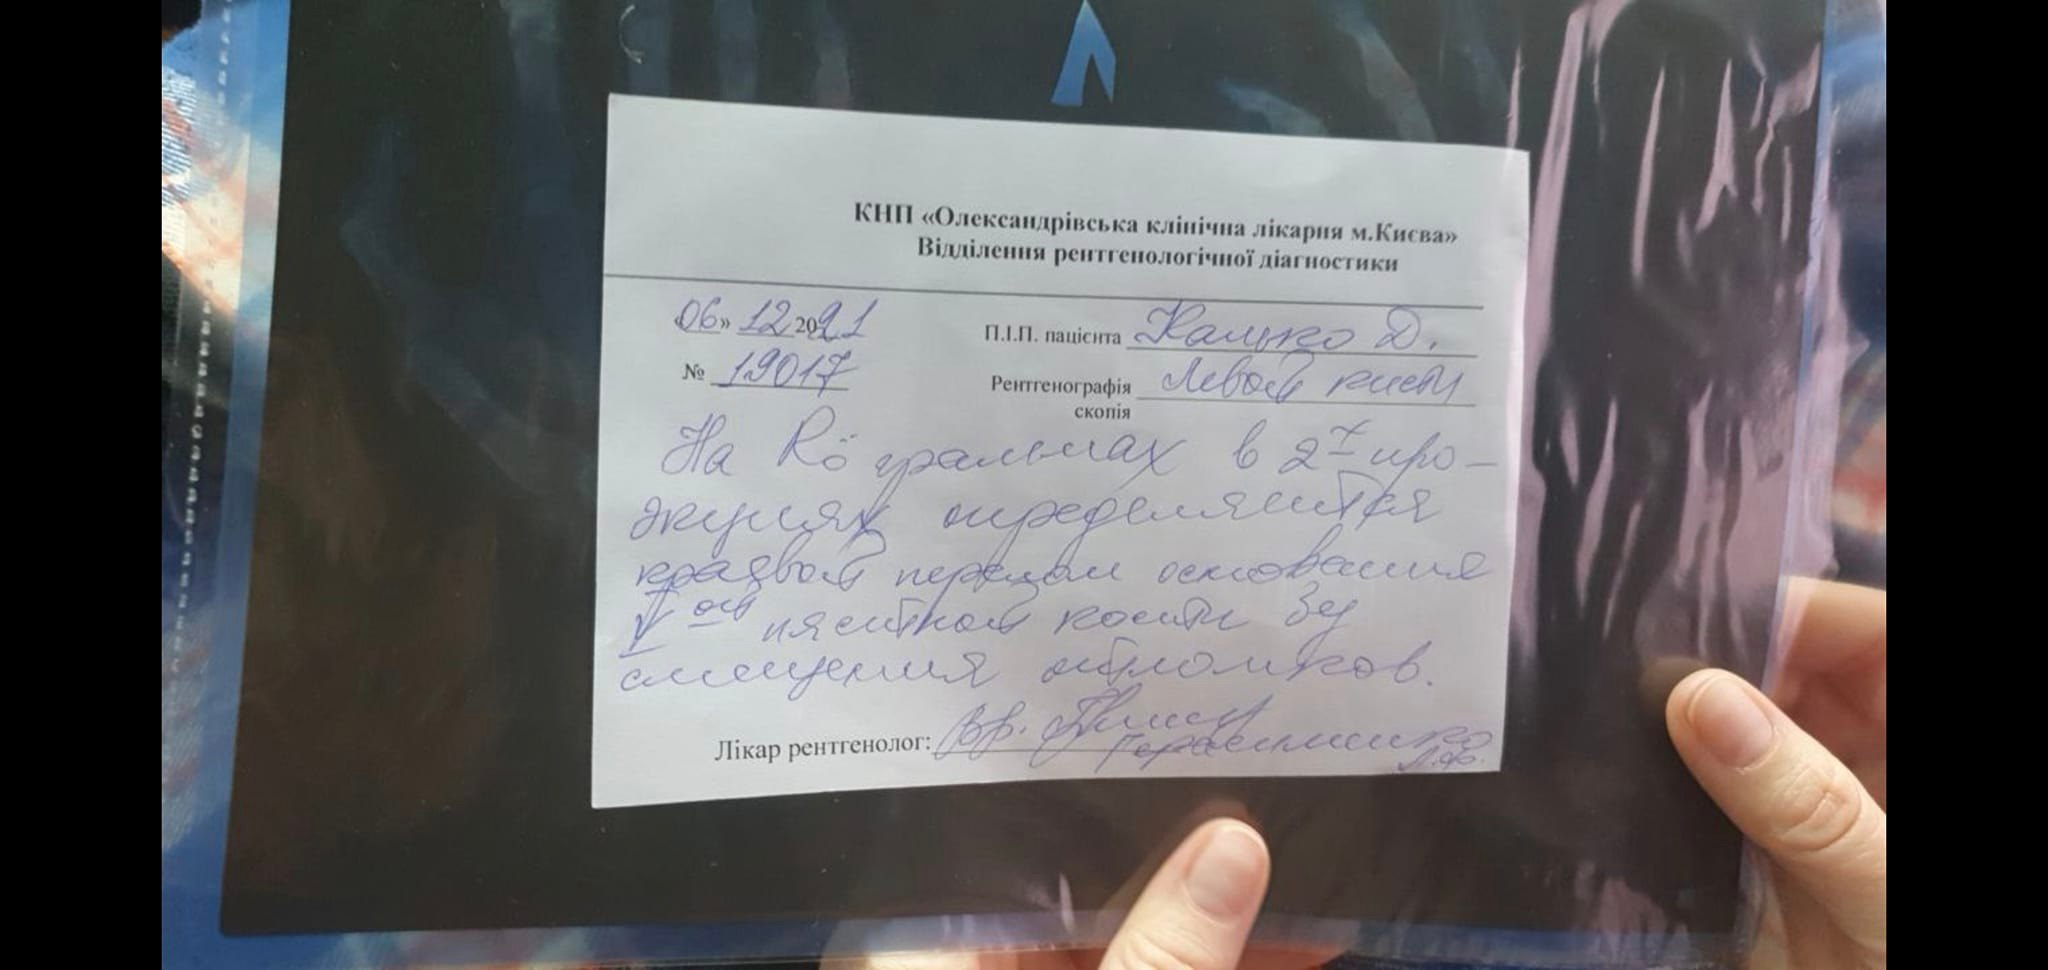 КНП «Олександрівська клінічна лікарня м.Києва»
Відділення рентгенологічної діагностики
«06» 12 2021 П.І.П. пацієнта Калько Д.
№ 19017 Рентгенографія левой кисти
скопія
На Rö граммах в 2х про-
экциях определяется
краевой перелом основания
V ой пястной кости без
смещения отломков.
Лікар рентгенолог: Вр. Герасименко